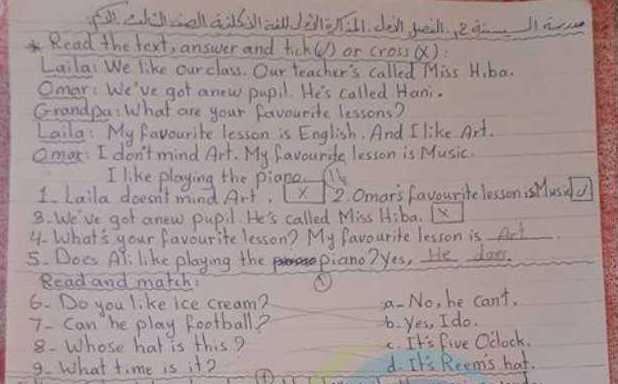 مدرسة السيسنية 2م. الفصل الأول. المذاكرة الأولى للغة الانكليزية الصف الثالث
* Read the text, answer and tick (✓) or cross (X):
Laila: We like our class. Our teacher's called Miss Hiba.
Omar: We've got anew pupil. He's called Hani.
Grandpa: What are your favourite lessons?
Laila: My favourite lesson is English. And I like Art.
Omar: I don't mind Art. My favourite lesson is Music.
I like playing the piano.
1- Laila doesn't mind Art. X 2. Omar's favourite lesson is Music ✓
3. We've got anew pupil. He's called Miss Hiba. X
4- What's your favourite lesson? My favourite lesson is Art.
5- Does Ali like playing the piano? Yes, He does.
Read and match:
6- Do you like ice cream? a- No, he can't.
7- Can he play football? b- Yes, I do.
8- Whose hat is this? c- It's five O'clock.
9- What time is it? d- It's Reem's hat.